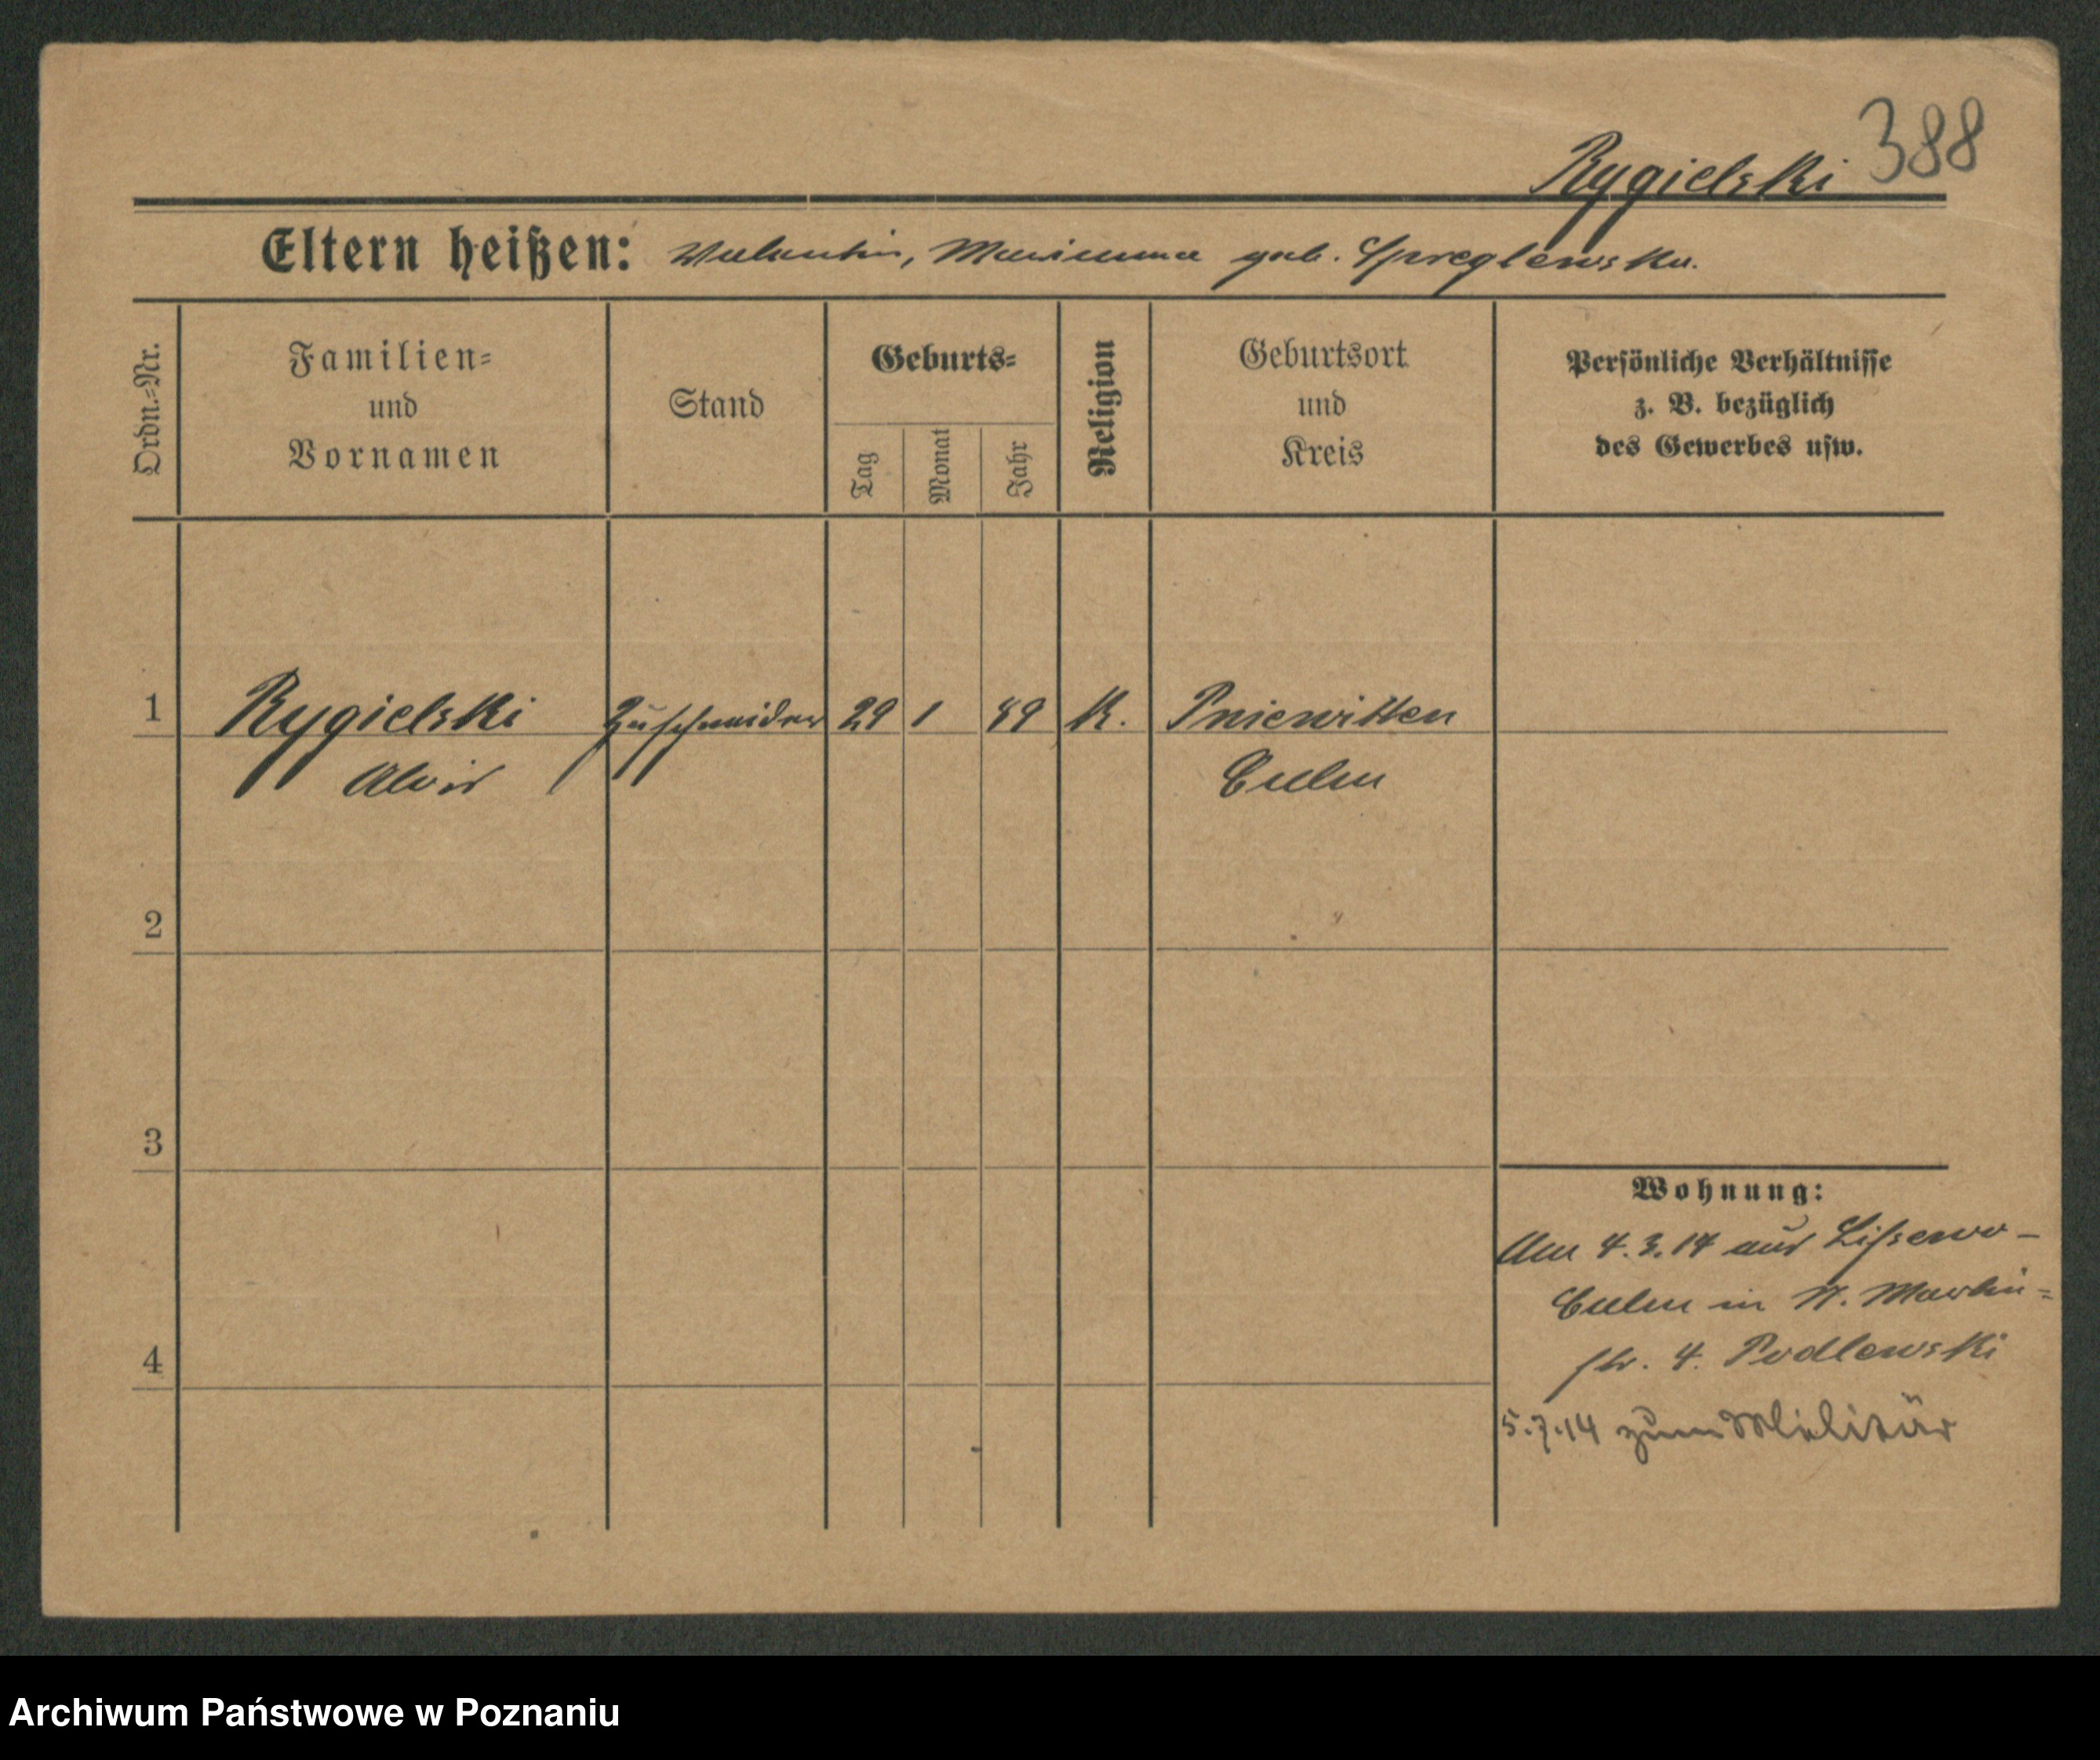 388
Rygielski
Eltern heißen: Valentin, Marianna geb. Spreglewska.
Ordn.-Nr.
Familien-
und
Vornamen
Stand
Geburts-
Tag
Monat
Jahr
Religion
Geburtsort
und
Kreis
Persönliche Verhältnisse
z. B. bezüglich
des Gewerbes usw.
1 Rygielski Zuschneider 29 1 89 K. Pniewitten
Alois Culm
2
3
4
Wohnung:
Am 4.3.14 aus Lissewo-
Culm in Martin-
str. 4. Podlewski
5.7.14 zum Militär
Archiwum Państwowe w Poznaniu